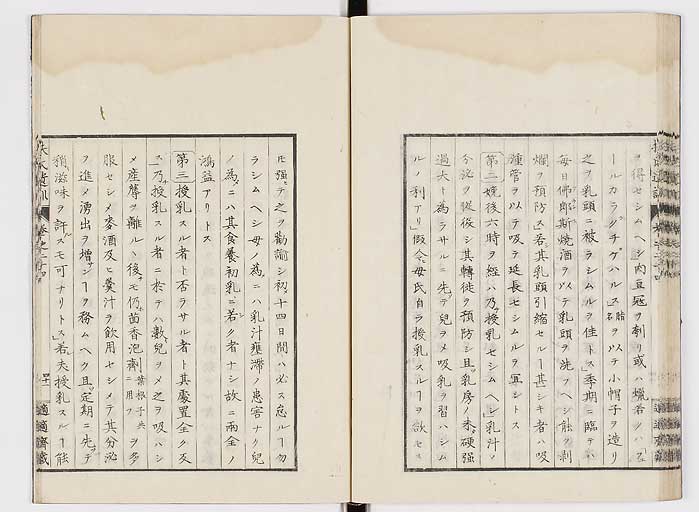 ヲ得セシムヘシ肉豆冠ヲ刳リ或ハ蠟若クハフ
ールカラグチゲハルス脂名ヲ以テ小帽子ヲ造リ
之ヲ乳頭ニ被ラシムルヲ佳トス季期ニ臨テハ
毎日佛郎斯焼酒ヲ以テ乳頭ヲ洗フヘシ能ク剥
爛ヲ預防ス若其乳頭引縮セルー甚シキ者ハ吸
腫管ヲ以テ吸テ延長セシムルヲ冝シトス
第二娩後六時ヲ経ハ乃授乳セシムヘシ乳汁ノ
分泌ヲ従促シ其轉徙ヲ預防シ且乳房ノ未硬强
過大ト為ラサルニ先テ兒ヲメ吸乳ヲ習ハシム
ルノ利アリ假令母氏自ラ授乳スルーヲ欲セス
扶氏遺訓 巻之二十四
適適齋藏
モ强テ之ヲ勸諭シ初十四日間ハ必ス怠ルー勿
ラシムヘシ母ノ為ニハ乳汁壅滞ノ患害ナク兒
ノ為ニハ其食養初乳ニ若ク者ナシ故ニ両全ノ
鴻益アリトス
第三授乳スル者ト否ラサル者ト其處置全ク反
ス乃授乳スル者ニ於テハ數兒ヲメ之ヲ吸ハシ
メ産蓐ヲ離ルヽ後モ仍茴香泡劑葉根子共ニ用フヲ多
服セシメ麥酒及ヒ羹汁ヲ飲用セシメテ其分泌
ヲ進メ湧出ヲ増シーヲ務ムヘク且定期ニ先テ
稍滋味ヲ許スモ可ナリトス若夫授乳スルー能
扶氏遺訓 巻之二十四
四十一
適適齋藏